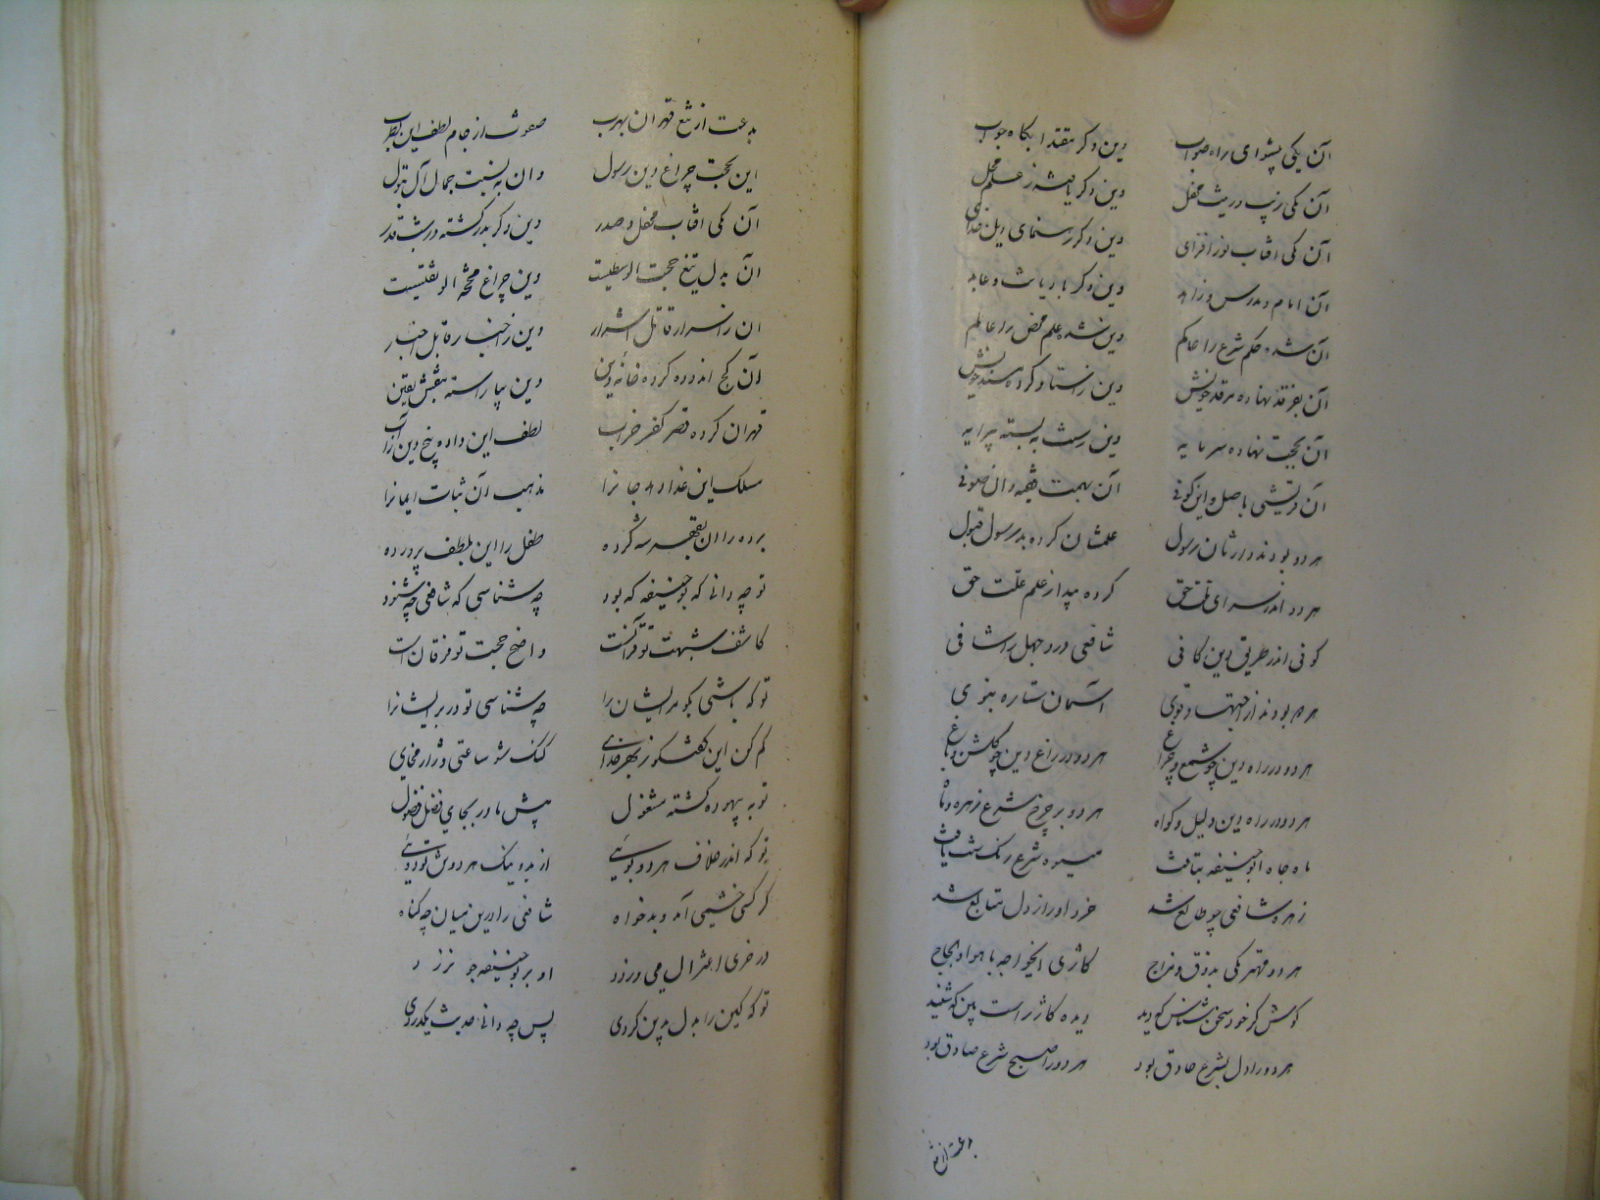 آن یکی پیشوای راه صواب وین دگر مقتدا بگاه جواب
آن یکی زیب در محفل وین دگر ز علم محل
آن یکی آفتاب نور افزای وین دگر رهنمای دین خدای
آن امام و مدرس و زاهد وین دگر با ریاضت و عابد
آن شده حکم شرع را حاکم وین شده علم محض را عالم
آن بفرقد نهاده مرقد خویش وین کرده مسند خویش
آن بحجت نهاده سرمایه وین بسته پیرایه
آن باصل و این کوفی آن بهمت فقیه و آن صوفی
هر دو بودند وارثان رسول علمشان کرده بد رسول قبول
هر دو اندر سرای ملت حق کرده پیدا ز علم علت حق
کوفی اندر طریق دین کافی شافعی درد جهل را شافی
هر دو بودند از اجتهاد قوی آسمان ستاره نبوی
هر دو در راه دین چو شمع و چراغ هر دو در راغ دین چو گلشن و باغ
هر دو در راه دین دلیل و گواه هر دو بر چرخ شرع زهره و ماه
ماه جاه ابوحنیفه بتافت میوه شرع رنگ یافت
زهره شافعی چو طالع شد خرد او را ز دل متابع شد
هر دو مهتر یکی بذوق و مزاج کاژی ای خواجه با هوا و لجاج
گوش کر خود سخن شناس که دید دیده کاژ راست بین که شنید
هر دو را دل بشرع صادق بود هر دو را صبح شرع صادق بود
بدعت از تیغ
بدعت از تیغ قهر آن بهرب صفوت از جام لطف این بطرب
این بحجت چراغ دین رسول وان به نسبت جمال آل بتول
آن یکی آفتاب محفل و صدر وین دگر بدر گشته در شب قدر
آن بدل تیغ حجت وین چراغ محجة
آن ز اسرار قاتل اشرار وین ز اخبار قابل اخیار
آن گچ اندوده کرده خانه دین وین بیاراسته بنقش یقین
قهر آن کرده قصر کفر خراب لطف این داده بیخ دین را آب
مسلک این غذا دهد جانرا مذهب آن ثبات ایمانرا
برده را آن بقهر سر کرده طفل را این بلطف پرورده
تو چه دانی که بوحنیفه که بود چه شناسی که شافعی چه شنود
کاشف شبهت تو قرآنست واضح حجت تو فرقان است
تو که باشی بگو مر ایشان را چه شناسی تو درد ایشانرا
کم کن این گفتگو ز بهر خدای گنگ شو ساعتی و ژاژ مخای
تو به بیهوده گشته مشغول پیش ما در بجای فضل فضول
تو که اندر خلاف هر دو بوئی از بد و نیک هر دوش تو دوئی
گر کسی خشمی آمد و بدخواه شافعی را درین میان چه گناه
در خری اعتزال می ورزد او بر بوحنیفه جو نرزد
تو که کین را بدل بدین کردی پس چه دانی حدیث یکدردی